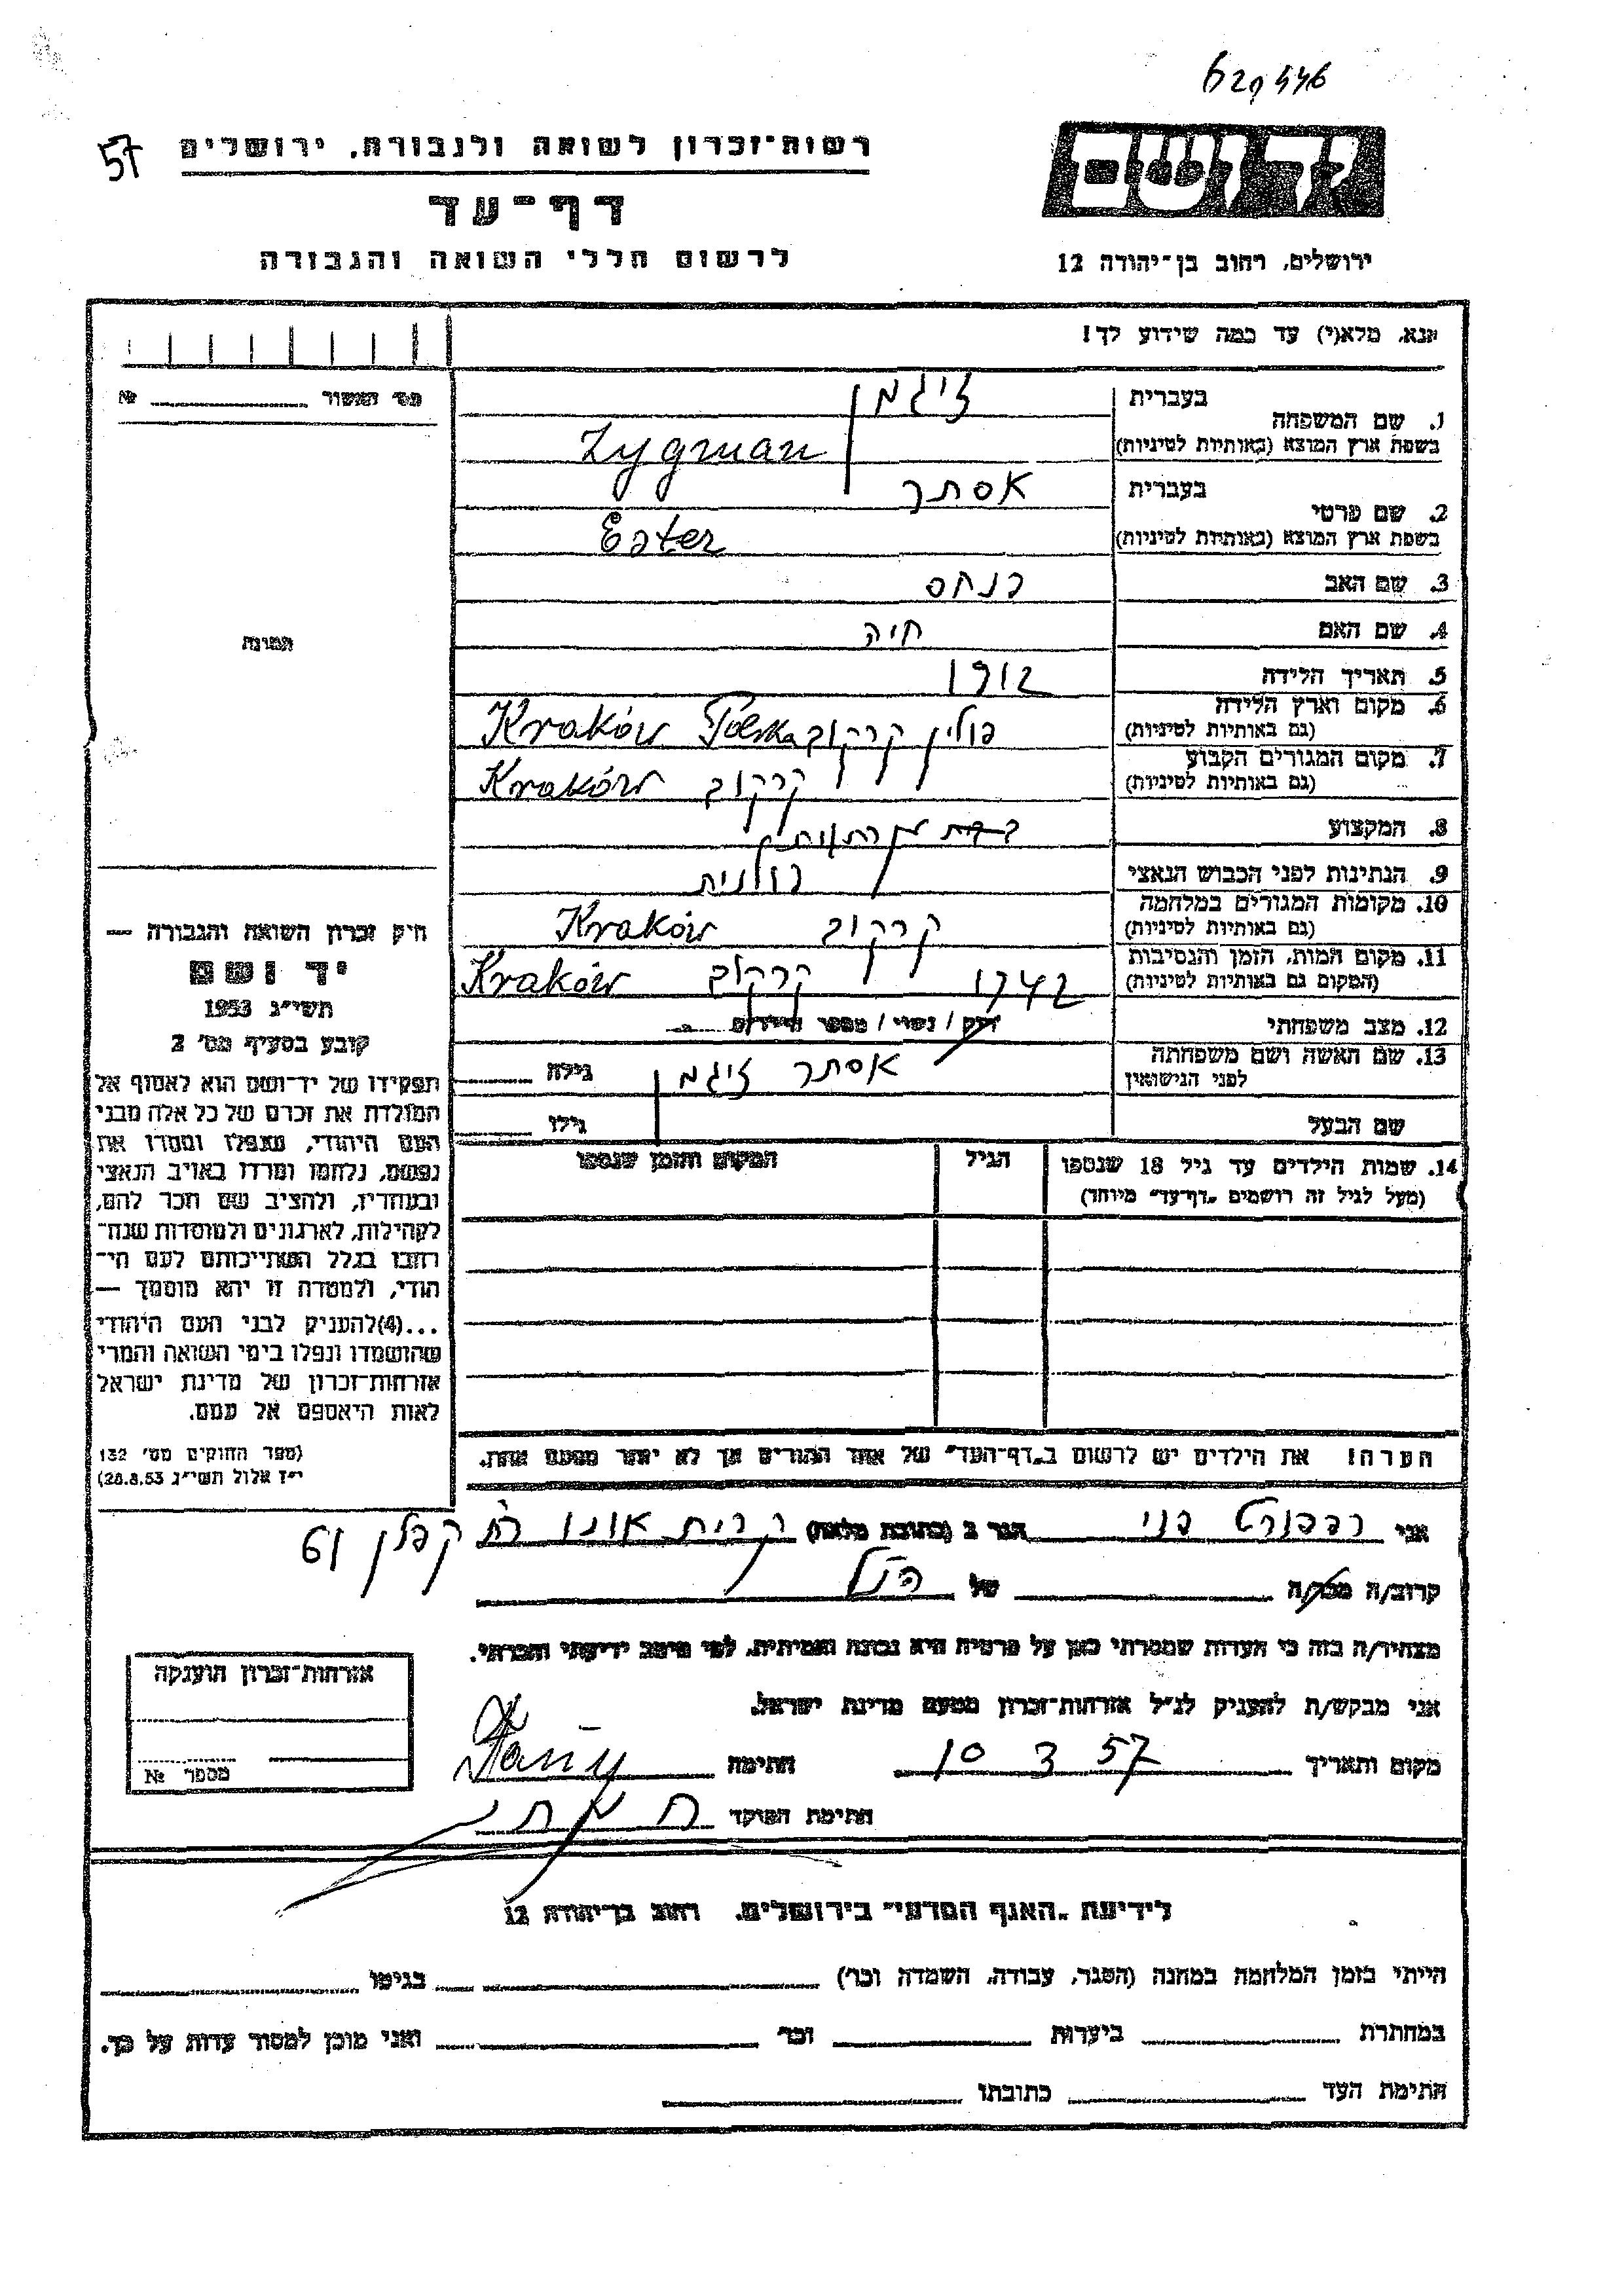 620446
57
רשות-זכרון לשואה ולגבורה, ירושלים
דף-עד
לרשום חללי השואה והגבורה
יד ושם
ירושלים, רחוב בן-יהודה 12
אנא, מלא(י) עד כמה שידוע לך!
מס' האשור № 
1. שם המשפחה
בעברית זיגמן
בשפת ארץ המוצא (באותיות לטיניות) Zygman
2. שם פרטי
בעברית אסתר
בשפת ארץ המוצא (באותיות לטיניות) Ester
3. שם האב פנחס
4. שם האם חיה
5. תאריך הלידה 1912
6. מקום וארץ הלידה (גם באותיות לטיניות) פולין קרקוב Kraków Polska
7. מקום המגורים הקבוע (גם באותיות לטיניות) קרקוב Kraków
8. המקצוע
9. הנתינות לפני הכבוש הנאצי פולנית
10. מקומות המגורים במלחמה (גם באותיות לטיניות) קרקוב Kraków
11. מקום המות, הזמן והנסיבות (המקום גם באותיות לטיניות) 1942 קרקוב Kraków
12. מצב משפחתי רוק / נשוי / מספר הילדים
13. שם האשה ושם משפחתה לפני הנישואין אסתר זיגמן גילה
שם הבעל גילו
14. שמות הילדים עד גיל 18 שנספו (מעל לגיל זה רושמים "דף-עד" מיוחד)
הגיל
המקום והזמן שנספו
הערה! את הילדים יש לרשום ב"דף-העד" של אחד ההורים אך לא יותר מפעם אחת.
תמונה
חיק זכרון השואה והגבורה —
יד ושם
תשי"ג 1953
קובע בסעיף מס' 2
תפקידו של יד-ושם הוא לאסוף אל
המולדת את זכרם של כל אלה מבני
העם היהודי, שנפלו ומסרו את
נפשם, נלחמו ומרדו באויב הנאצי
ובעוזריו, ולהציב שם וזכר להם,
לקהילות, לארגונים ולמוסדות שנח־
רבו בגלל השתייכותם לעם הי־
הודי, ולמטרה זו יהא מוסמך —
...(4)להעניק לבני העם היהודי
שהושמדו ונפלו בימי השואה והמרי
אזרחות-זכרון של מדינת ישראל
לאות היאספם אל עמם.
(ספר החוקים מס' 132
י"ז אלול תשי"ג 28.8.53)
אני רפפורט דני הגר ב (כתובת מלאה) קרית אונו רח' קפלן 61
קרוב/ה מכר/ה של הנ"ל
מצהיר/ה בזה כי העדות שמסרתי כאן על פרטיה היא נכונה ואמיתית, לפי מיטב ידיעתי והכרתי.
אני מבקש/ת להעניק לנ"ל אזרחות-זכרון מטעם מדינת ישראל.
מקום ותאריך 10 3 57 חתימה Dany
חתימת הפוקד
אזרחות-זכרון הוענקה
מספר №
לידיעת "האגף המדעי" בירושלים, רחוב בן-יהודה 12
הייתי בזמן המלחמה במחנה (הסגר, עבודה, השמדה וכו') בגיטו
במחתרת ביערות וכו' ואני מוכן למסור עדות על כך.
חתימת העד כתובתו